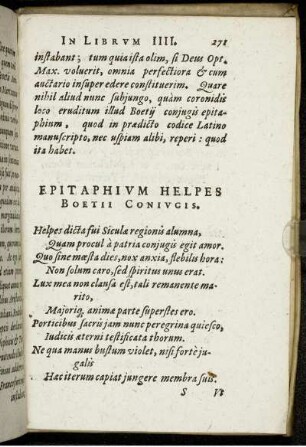 IN LIBRVM IIII. 271
instabant; tum quia ista olim, si Deus Opt.
Max. voluerit, omnia perfectiora & cum
auctario insuper edere constituerim. Quare
nihil aliud nunc subjungo, quàm coronidis
loco eruditum illud Boetij conjugis epita-
phium, quod in prædicto codice Latino
manuscripto, nec uspiam alibi, reperi: quod
ita habet.
EPITAPHIVM HELPES
BOETII CONIVGIS.
Helpes dicta fui Siculæ regionis alumna,
Quam procul à patria conjugis egit amor.
Quo sine mœsta dies, nox anxia, flebilis hora:
Non solum caro, sed spiritus unus erat.
Lux mea non clausa est, tali remanente ma-
rito,
Majoriq, animæ parte superstes ero.
Porticibus sacris jam nunc peregrina quiesco,
Iudicis æterni testificata thorum.
Ne qua manus bustum violet, nisi fortè ju-
galis
Hæc iterum capiat jungere membra suis.
S Vt